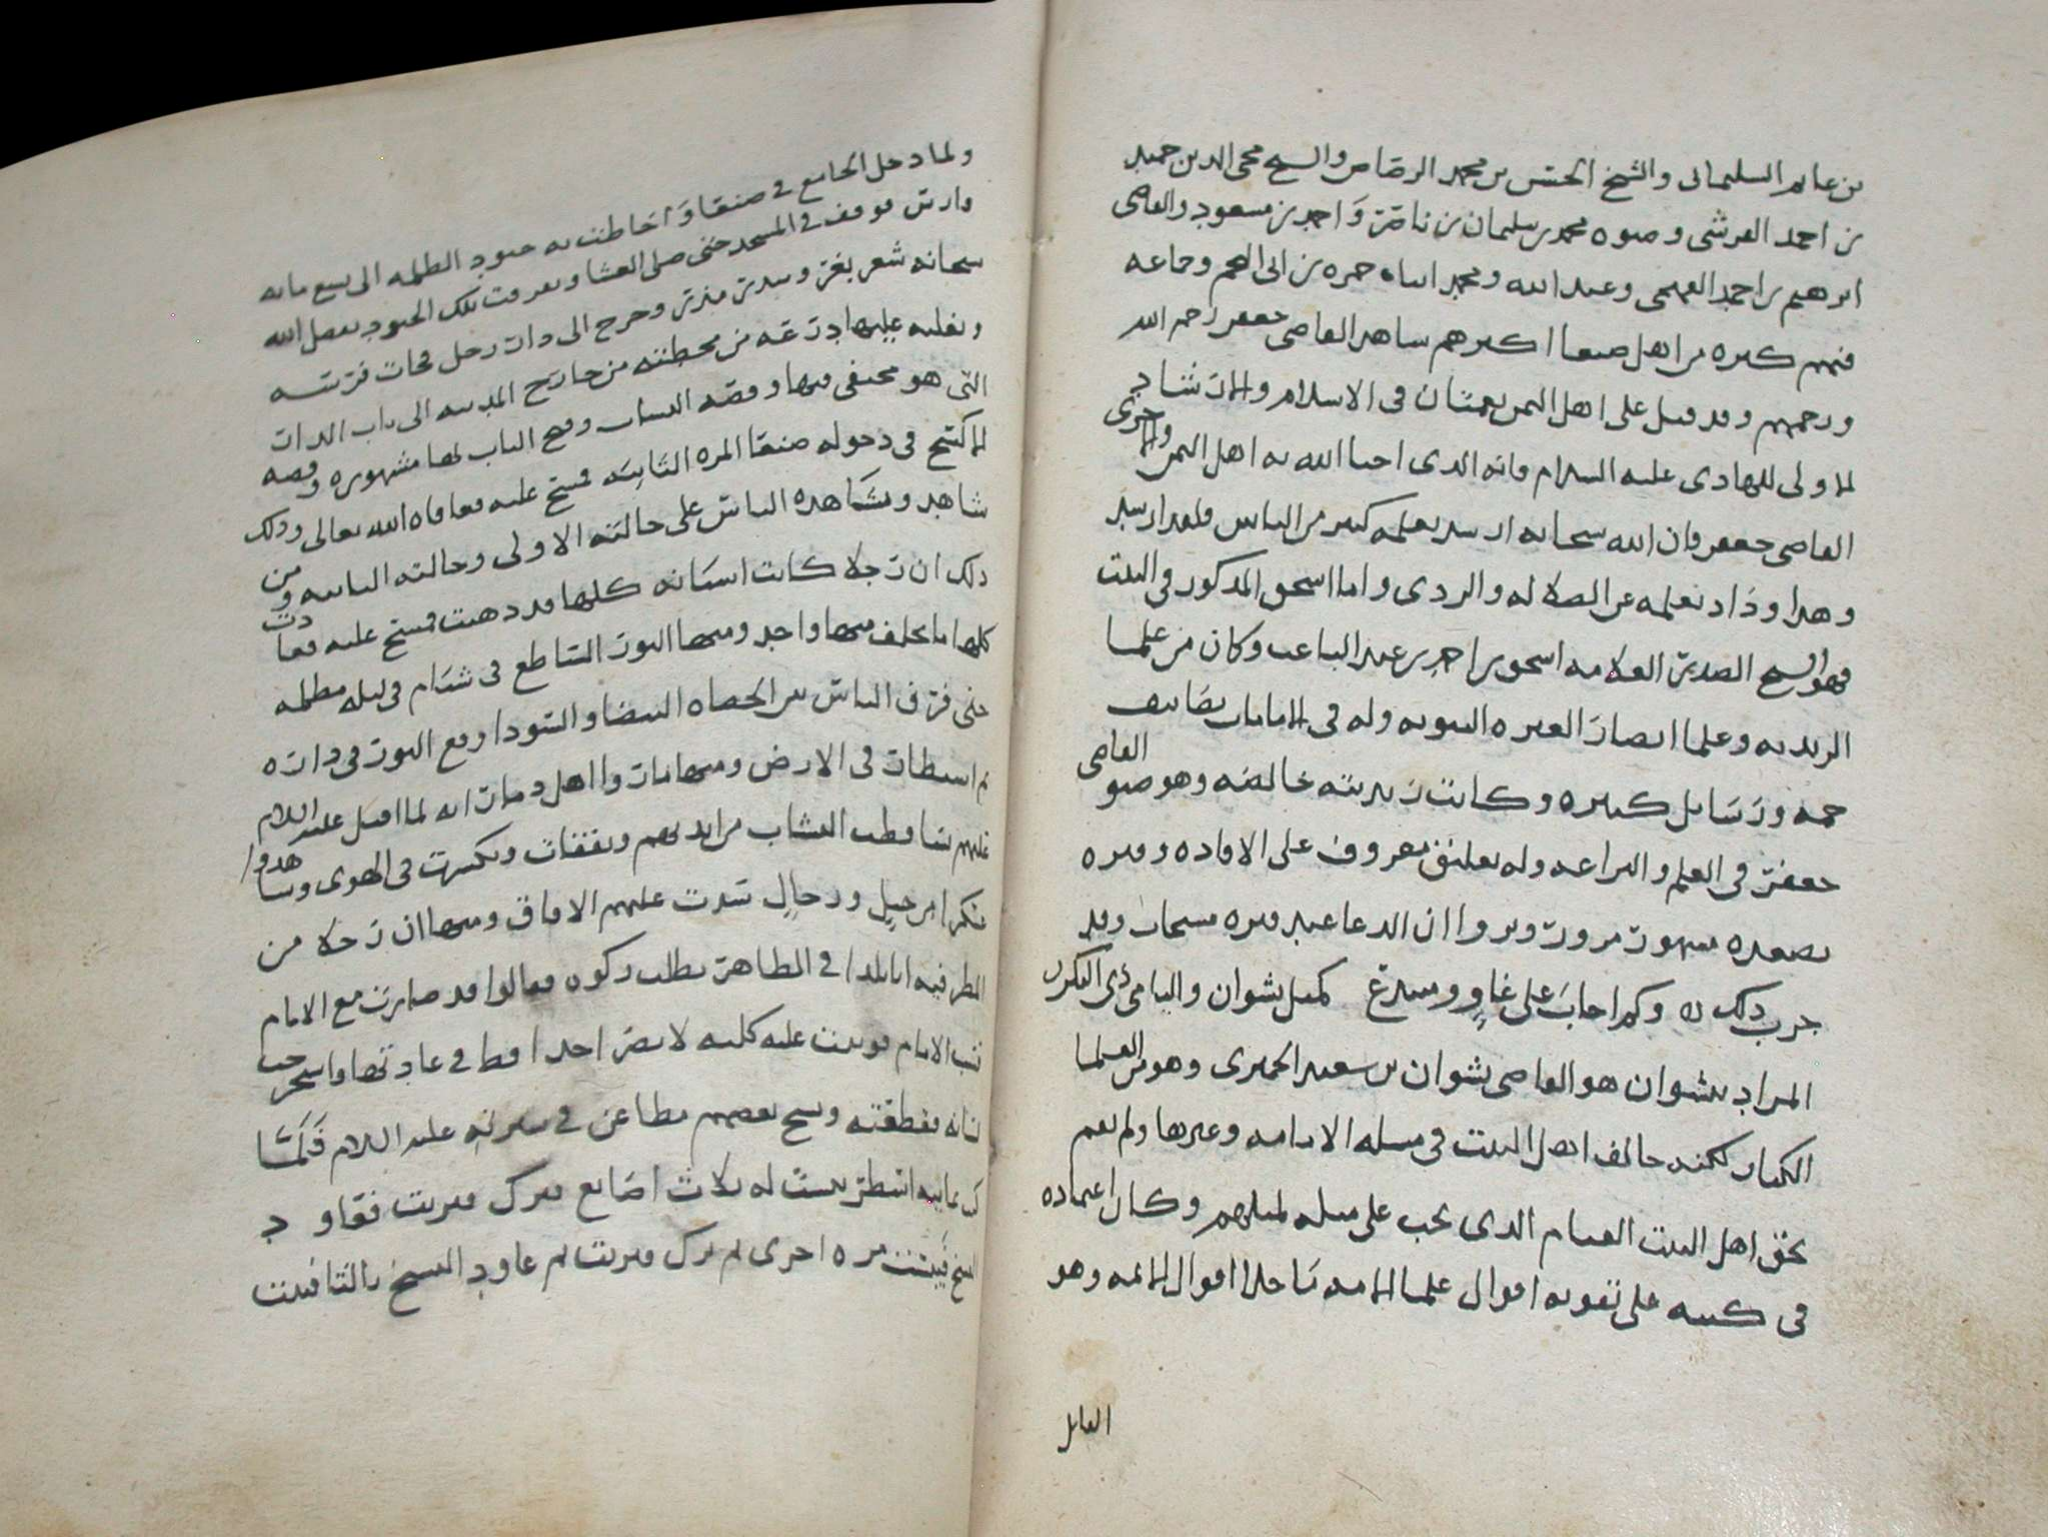 بن عامر السليماني والشيخ الحسن بن محمد الرصاص والشيخ محيي الدين حميد
بن احمد القرشي وصنوه محمد بن سليمان بن ناصر واحمد بن مسعود والقاضي
ابرهيم بن احمد الفهمي وعبد الله ومحمد ابناء حمزه بن ابي النجم وجماعه
فيهم كثره من اهل صنعا اكبرهم ساهر القاضي جعفر رحمه الله
ورحمهم وقد قيل على اهل اليمن نعمتان في الاسلام والارشاد
الاولى للهادي عليه السلام فانه الذي احيا الله به اهل اليمن والاخرى
القاضي جعفر فان الله سحانه ارسد بعلمه كثير من الناس فلقد ارسد
وهدا وذاد بعلمه عن الضلاله والردى واما اسحق المذكور في البيت
فهو الشيخ الصدر العلامه اسحق بن احمد بن عبد الباعث وكان من علما
الزيديه وعلما انصار العتره النبويه وله في الامامات تصانيف
جمه ورسايل كثيره وكانت زيديته خالصه وهو صنو القاضي
جعفر في العلم والبراعه وله تعليق معروف على الافاده وقبره
بصعده مشهور مزور ويروا ان الدعا عند قبره مستجاب وقد
جرب ذلك ٥ وكم احاب على غاو ومبتدع كمثل نشوان واليامي ذي النكر
المراد بنشوان هو القاضي نشوان بن سعيد الحميري وهو من العلما
الكبار لكنه خالف اهل البيت في مسله الامامه وغيرها ولم يقم
بحق اهل البيت القيام الذي يجب على مثله لمثلهم وكان اعتماده
في كتبه على تقويه اقوال علما الامه ناحلا اقوال الائمه وهو
القايل
ولما دخل الجامع في صنعا واحاطت به جنود الظلمه الى سبع مايه
فارس فوقف في المسجد حتى صلى العشا وتفرقت تلك الجنود بفضل الله
سحانه شعر بغز وخرج الى دار رجل فجات فرسه
من محطته من خارج المدينه الى باب الدار
التي هو مختفي فيها وقصه وفتح الباب لها مشهوره وقصه
الاكتح في دخوله صنعا المره الثانيه فمسح عليه فعافاه الله تعالى وذلك
شاهد وشاهده الناس على حالته الاولى وحالته الثانيه ومن
ذلك ان رجلا كانت اسنانه كلها قد ذهبت فمسح عليه فعادت
كلها ما تخلف منها واحد ومنها النور الساطع في شبام في ليله مظلمه
حتى فرق الناس بين الحصاه البيضا والسودا رفع النور في داره
ثم استطار في الارض ومنها ما روا اهل ذمار انه لما اقبل عليه السلام
عليهم تساقطت النشاب من ايديهم وتكسرت في الهوى وشاهدوا
عسكرا من خيل ورجال سدت عليهم الافاق ومنها ان رجلا من
المطرفيه اتا بلدا في الظاهر يطلب زكوه فقالوا قد صارت مع الامام
فسب الامام فوثبت عليه كلبه لا تضر احدا قط في عادتها
لسانه فقطعته وسمع بعضهم مطاعن في سيرته عليه السلام فكلما
اسطر يبست له ثلاث اصابع فترك فبريت فعاود
النسخ فيبست مره اخرى ثم ترك فبريت ثم عاود النسخ ثالثا فيبست